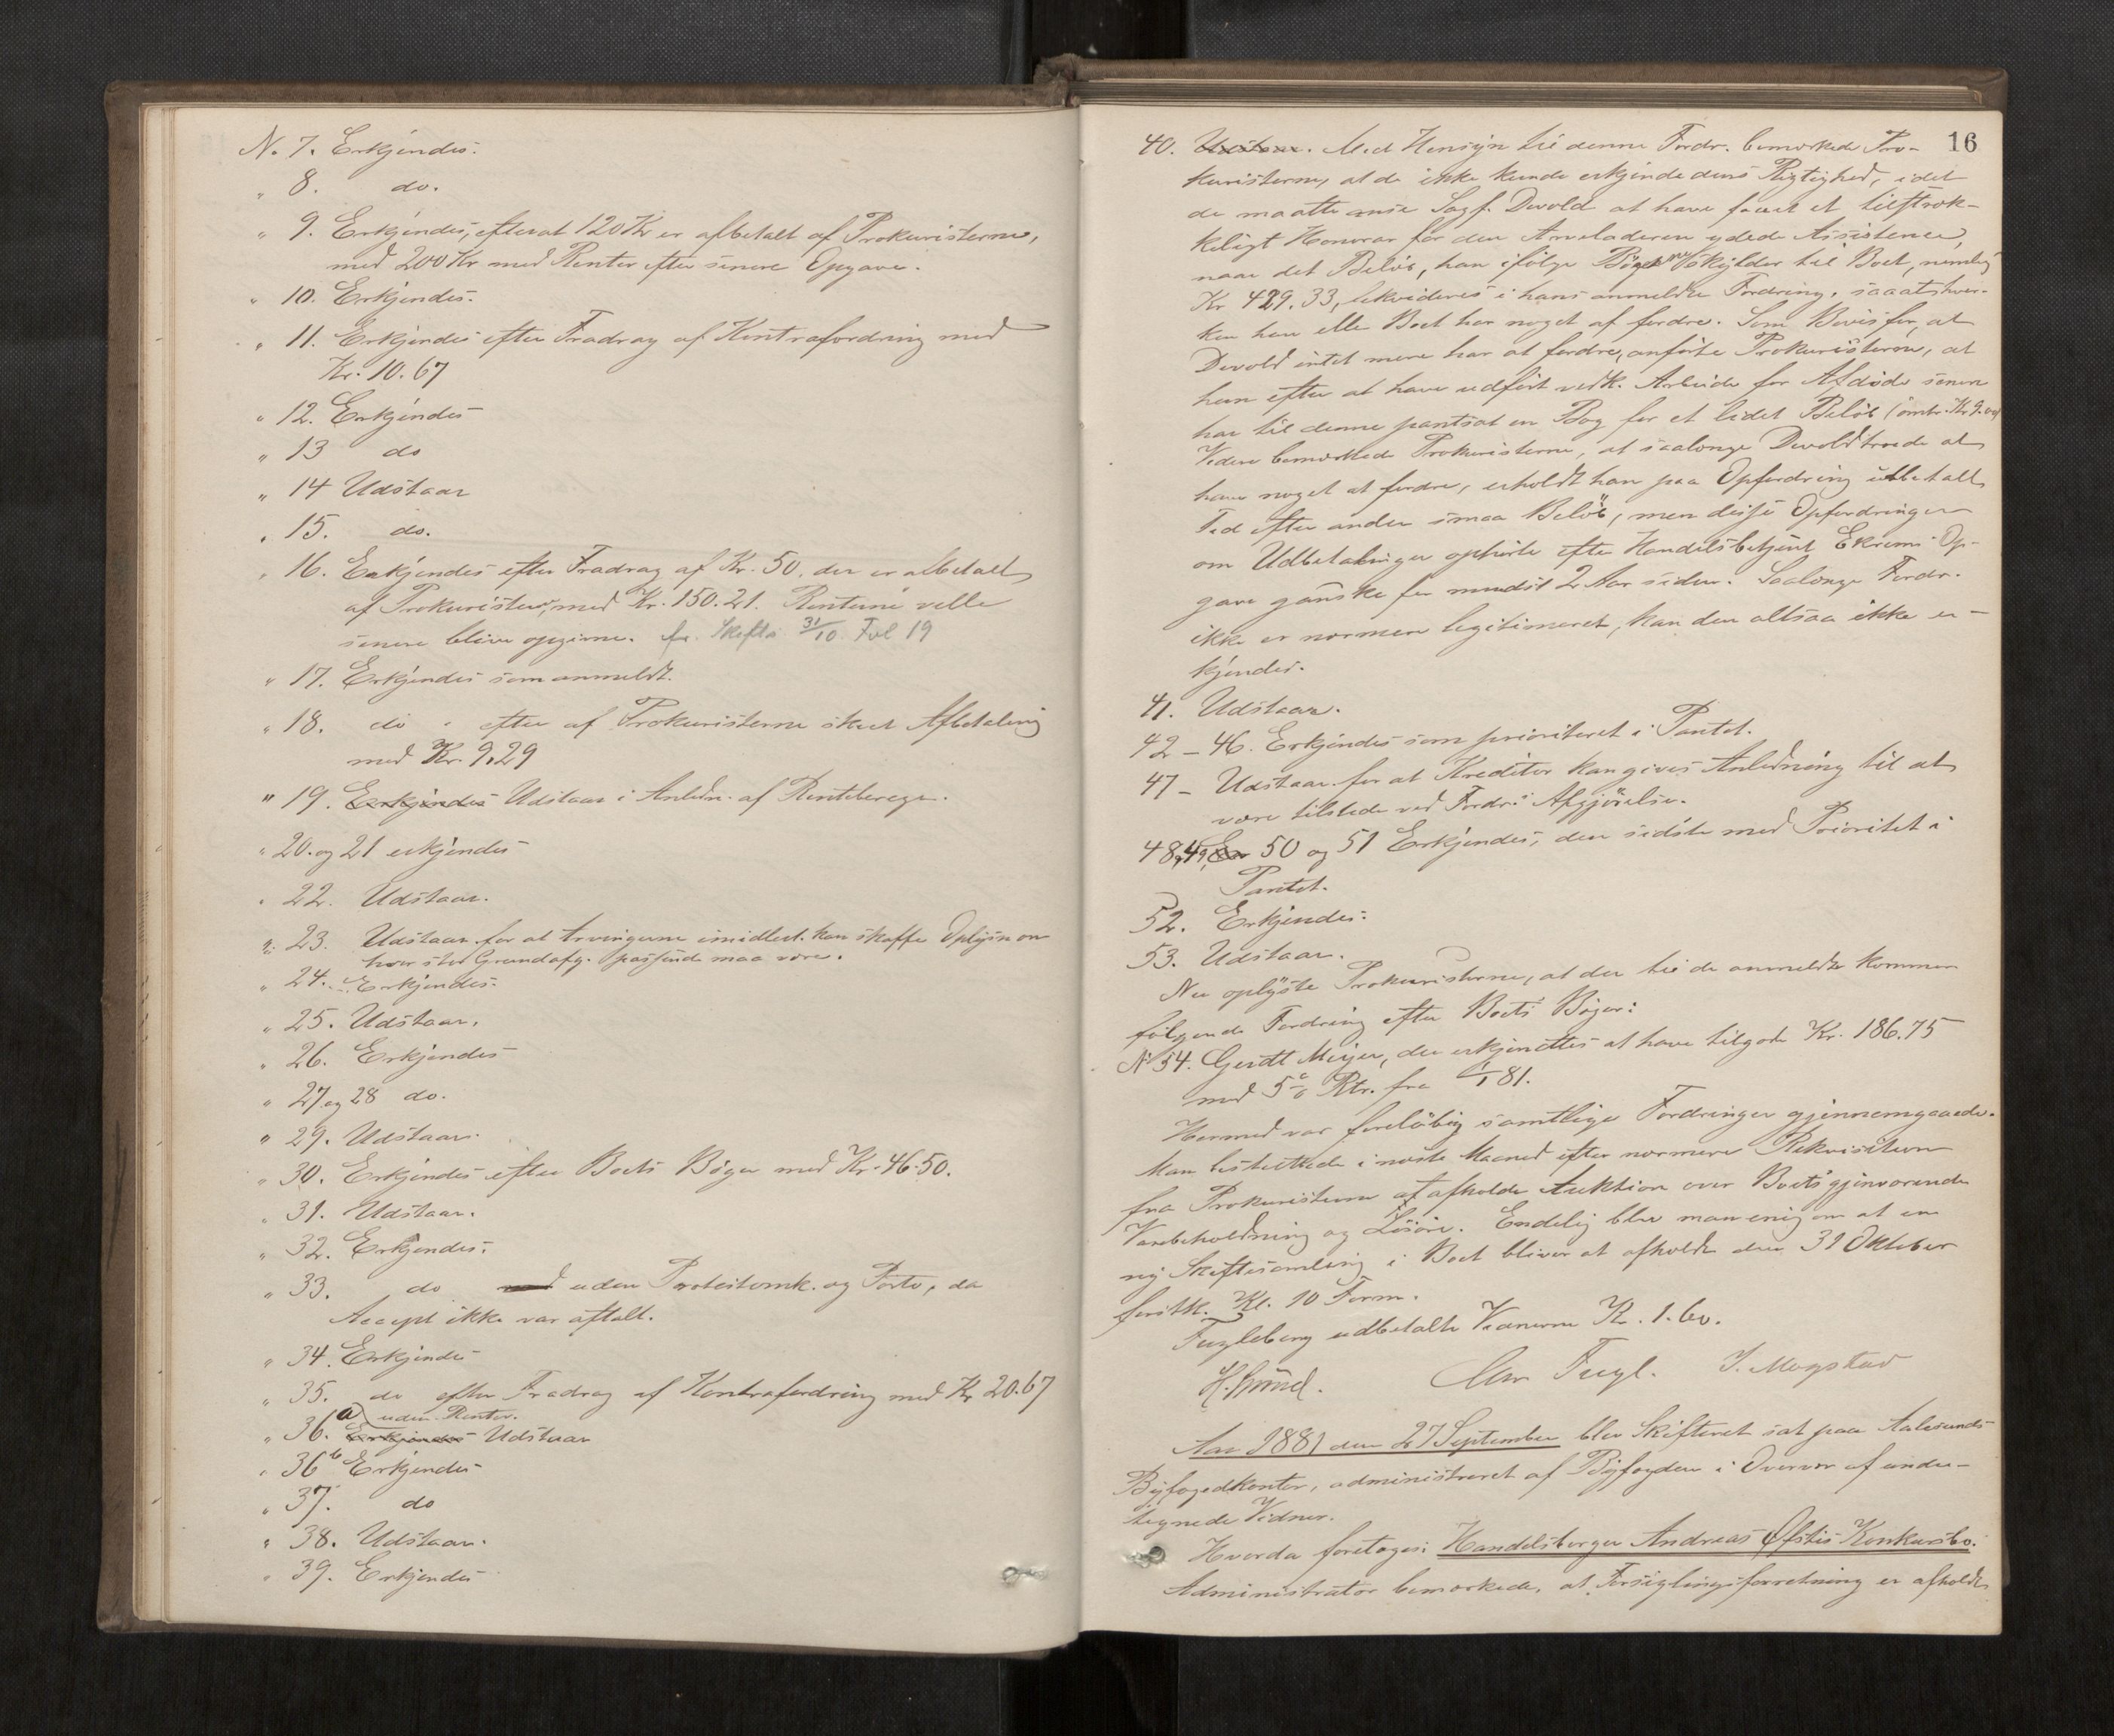 N. 7. Erkjendes.
" 8. do.
" 9. Erkjendes, efterat 120 Kr er afbetalt af Prokuristerne,
med 200 Kr med Renter efter senere Opgave.
" 10. Erkjendes.
" 11. Erkjendes efter Fradrag af Kontrafordring med
Kr. 10.67
" 12. Erkjendes
" 13 do
" 14 Udstaar
" 15. do.
" 16. Erkjendes efter Fradrag af Kr. 50, der er afbetalt
af Prokuristerne, med Kr. 150.21. Renterne ville
senere blive opgivne. fr. Skifts. 31/10 Fol 19
" 17. Erkjendes som anmeldt.
" 18. do - efter af Prokuristerne skeet Afbetaling
med Kr. 9.29
" 19. Erkjendes Udstaar i Anledn. af Renteberegn.
" 20. og 21 erkjendes
" 22. Udstaar.
" 23. Udstaar for at Arvingerne imidlert. kan skaffe Oplysn om
hvor stor Grundafg. passende maa være.
" 24. Erkjendes.
" 25. Udstaar.
" 26. Erkjendes
" 27 og 28 do.
" 29. Udstaar.
" 30. Erkjendes efter Boets Bøger med Kr. 46.50.
" 31. Udstaar.
" 32. Erkjendes.
" 33. do med uden Protestomk. og Porto, da
Accept ikke var aftalt.
" 34. Erkjendes
" 35. do efter Fradrag af Kontrafordring med Kr 20.67
uden Renter.
" 36. a) Erkjendes Udstaar
" 36 b Erkjendes
" 37. do
" 38. Udstaar.
" 39. Erkjendes
16
40. Udstaar. Med Hensyn til denne Fordr. bemærkede Pro-
kuristerne, at de ikke kunde erkjende dens Rigtighed, idet
de maatte anse Sagf. Devold at have faaet et tilstræk-
keligt Honorar for den Arveladeren ydede Assistence,
naar det Beløb, han ifølge Bøgerne skylder til Boet, nemlig
Kr 429.33, likvideres i hans anmeldte Fordring, saaat hver-
ken han eller Boet har noget at fordre. Som Bevis for, at
Devold intet mere har at fordre, anførte Prokuristerne, at
han efter at have udført vedk. Arbeide for Afdøde senere
har til denne pantsat en Bog for et lidet Beløb (omtr. Kr 9.00)
Videre bemærkede Prokuristerne, at saalænge Devold troede at
have noget at fordre, erholdt han paa Opfordring udbetalt
Tid efter anden smaa Beløb, men disse Opfordringer
om Udbetalinger ophørte efter Handelsbetjent Ekrems Op-
gave ganske for mindst 2 Aar siden. Saalænge Fordr.
ikke er nærmere legitimeret, kan den altsaa ikke er-
kjendes.
41. Udstaar.
42 – 46. Erkjendes som prioriteret i Pantet.
47 – Udstaar for at Kreditor kan gives Anledning til at
være tilstede ved Fordr.s Afgjørelse.
48, 49, 50 og 51 Erkjendes, den sidste med Prioritet i
Pantet.
52. Erkjendes.
53. Udstaar.
Nu oplyste Prokuristerne, at der til de anmeldte kommer
følgende Fordring efter Boets Bøger:
No 54. Gerdt Meyer, der erkjendtes at have tilgode Kr. 186.75
med 5 % Rtr. fra 1/1 81.
Hermed var foreløbig samtlige Fordringer gjennemgaaede.
Man besluttede i næste Maaned efter nærmere Rekvisition
fra Prokuristerne at afholde Auktion over Boets gjenværende
Varebeholdning og Løsøre. Endelig blev man enig om at en
ny Skiftesamling i Boet bliver at afholde den 31 Oktober
førstk. Kl. 10 Form.
Fugleberg udbetalte Vidnerne Kr. 1.60.
Chr Fugl. J. Mogstad
Aar 1881 den 27 September blev Skifteret sat paa Aalesunds
Byfogedkontor, administreret af Byfogden i Overvær af under-
tegnede Vidner.
Hvorda foretoges: Handelsborger Andreas Ofstis Konkursbo.
Administrator bemærkede, at Forseglingsforretning er afholdt